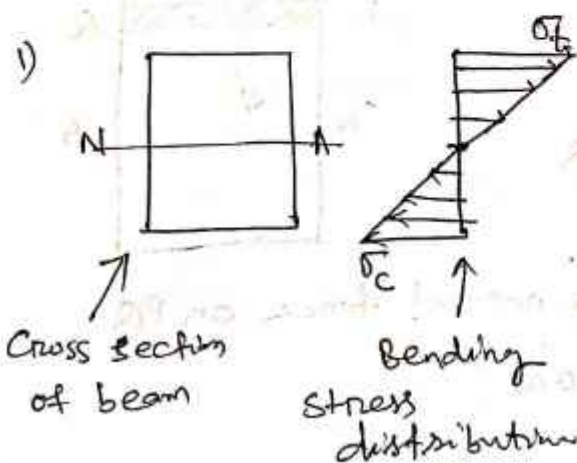 1)
σt
N A
σc
Cross section
of beam
Bending
stress
distribution